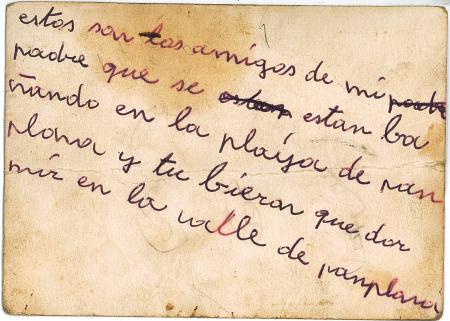 estos son los amigos de mi
padre que se estan ba
ñando en la plaíya de pan
plona y tu bieron que dor
mir en la valle de panplona